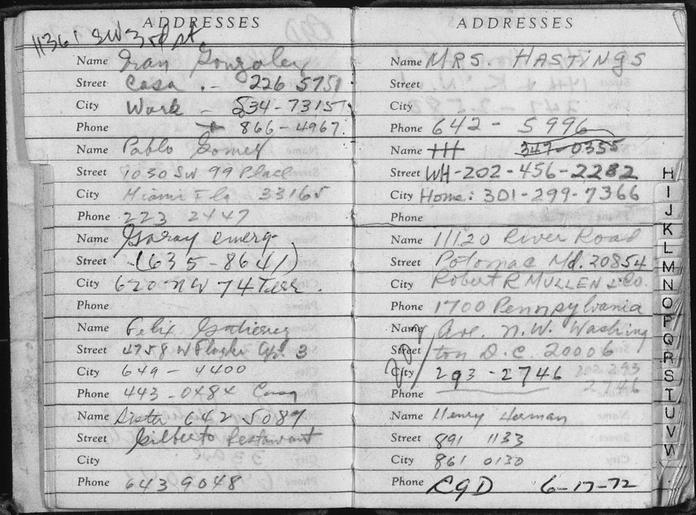 ADDRESSES
11361 SW 3rd pt
Name Ivan Gonzalez
Street Casa .- 226 5751
City Work - 534-7315
Phone 866-4967.
Name Pablo Gomez
Street 1030 SW 99 Place
City Miami Fla 33165
Phone 223 2447
Name Garay emerg-
Street (635-8641)
City 620 NW 74
Phone
Name Felix Gutierrez
Street 4758 W Flagler 3
City 649-4400
Phone 443-0484 Casa
Name 642 5087
Street Gilberto Restaurant
City
Phone 643 9048
ADDRESSES
Name MRS. HASTINGS
Street
City
Phone 642-5996
Name HH 347-0355
Street WH-202-456-2282
City Home: 301-299-7366
Phone
Name 11120 River Road
Street Potomac Md. 20854
City Robert R MULLEN & Co.
Phone 1700 Pennsylvania
Name Ave. N.W. Washing
Street ton D.C. 20006
City 293-2746 202 293
2746
Phone
Name Henry
Street 891 1133
City 861 0130
Phone RGD 6-17-72
H
I
J
K
L
M
N
O
P
Q
R
S
T
U
V
W